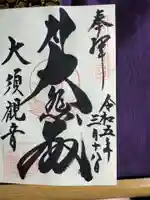 奉拝
令和五年三月十八日
大悲殿
大須観音